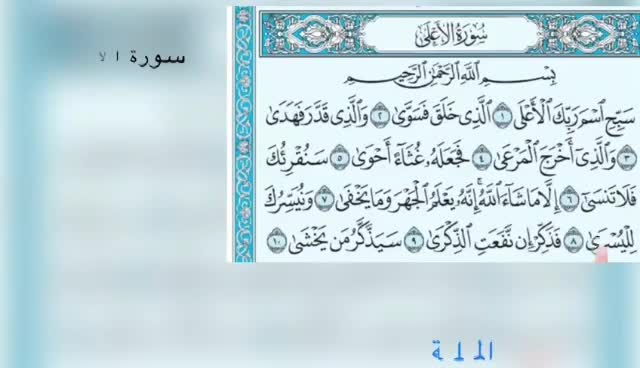 سورة الا
سُورَةُ الأَعْلَى
بِسْمِ اللَّهِ الرَّحْمَٰنِ الرَّحِيمِ
سَبِّحِ اسْمَ رَبِّكَ الْأَعْلَى ١ الَّذِي خَلَقَ فَسَوَّىٰ ٢ وَالَّذِي قَدَّرَ فَهَدَىٰ
٣ وَالَّذِي أَخْرَجَ الْمَرْعَىٰ ٤ فَجَعَلَهُ غُثَاءً أَحْوَىٰ ٥ سَنُقْرِئُكَ
فَلَا تَنسَىٰ ٦ إِلَّا مَا شَاءَ اللَّهُ إِنَّهُ يَعْلَمُ الْجَهْرَ وَمَا يَخْفَىٰ ٧ وَنُيَسِّرُكَ
لِلْيُسْرَىٰ ٨ فَذَكِّرْ إِن نَّفَعَتِ الذِّكْرَىٰ ٩ سَيَذَّكَّرُ مَن يَخْشَىٰ ١٠